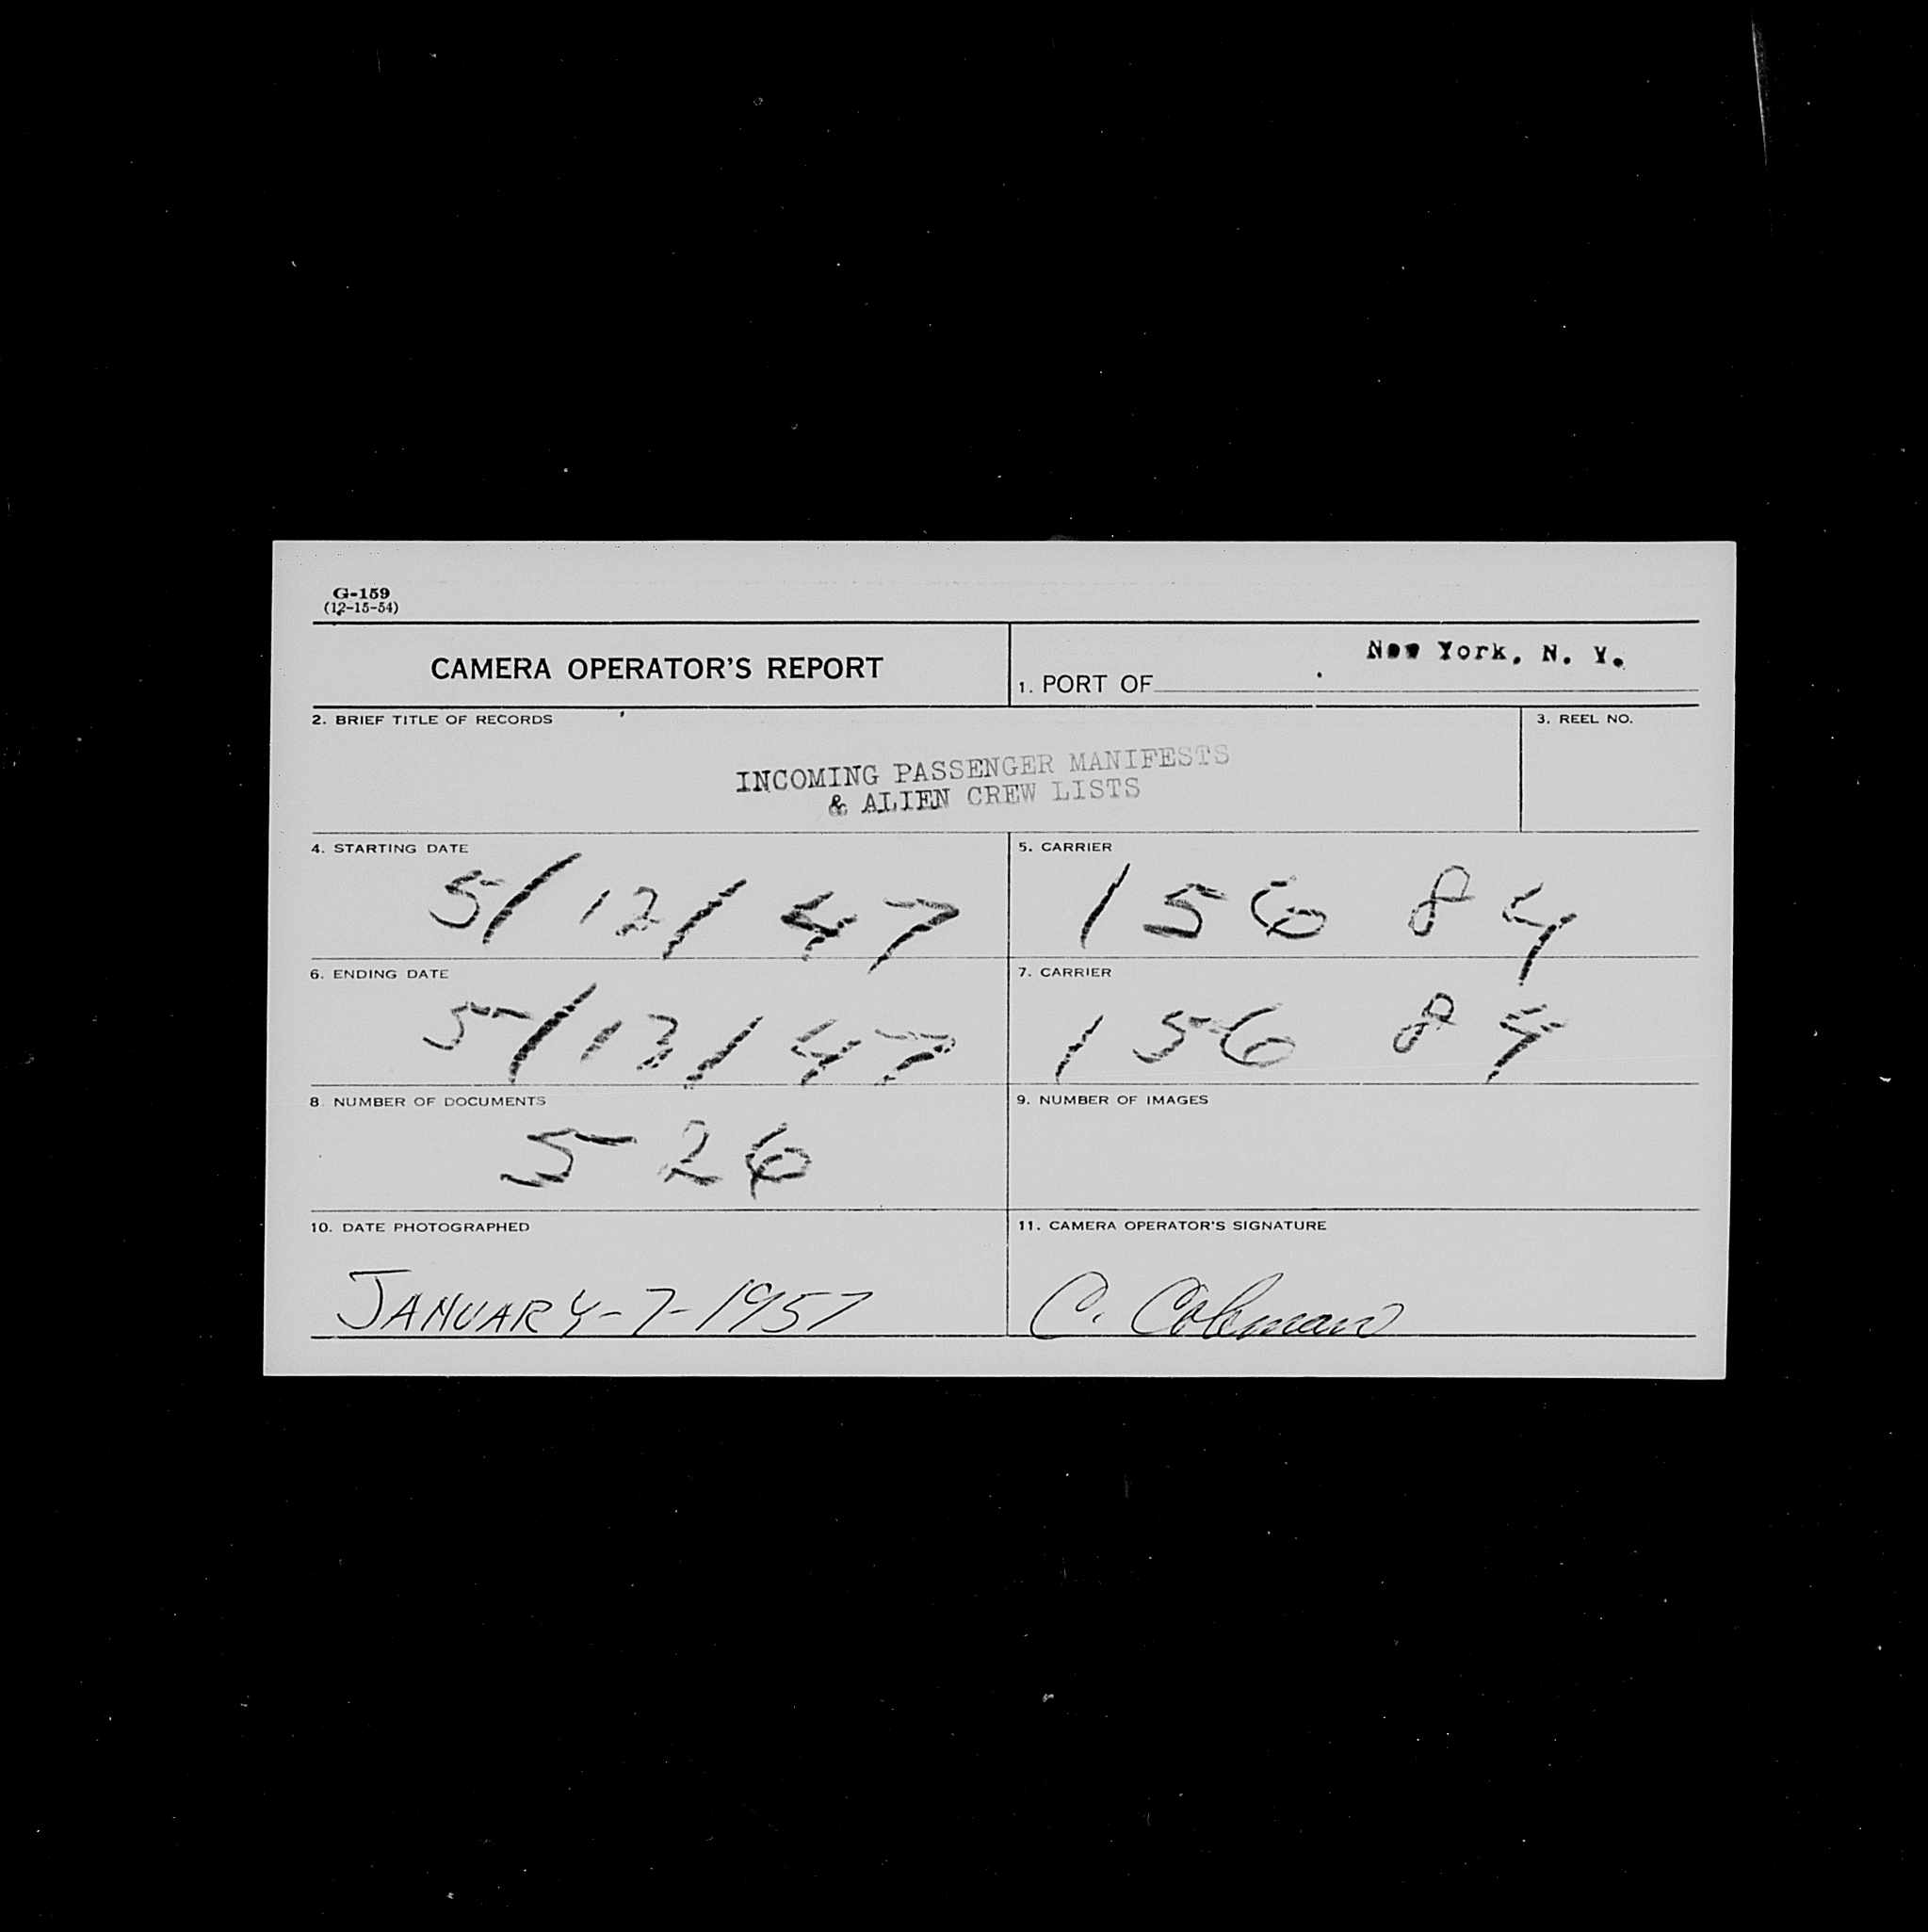 G-159
(12-15-54)
CAMERA OPERATOR'S REPORT
1. PORT OF New York, N. Y.
2. BRIEF TITLE OF RECORDS
3. REEL NO.
INCOMING PASSENGER MANIFESTS
& ALIEN CREW LISTS
4. STARTING DATE
5/12/47
5. CARRIER
156 84
6. ENDING DATE
5/13/47
7. CARRIER
156 84
8. NUMBER OF DOCUMENTS
526
9. NUMBER OF IMAGES
10. DATE PHOTOGRAPHED
JANUARY-7-1957
11. CAMERA OPERATOR'S SIGNATURE
C. Coleman